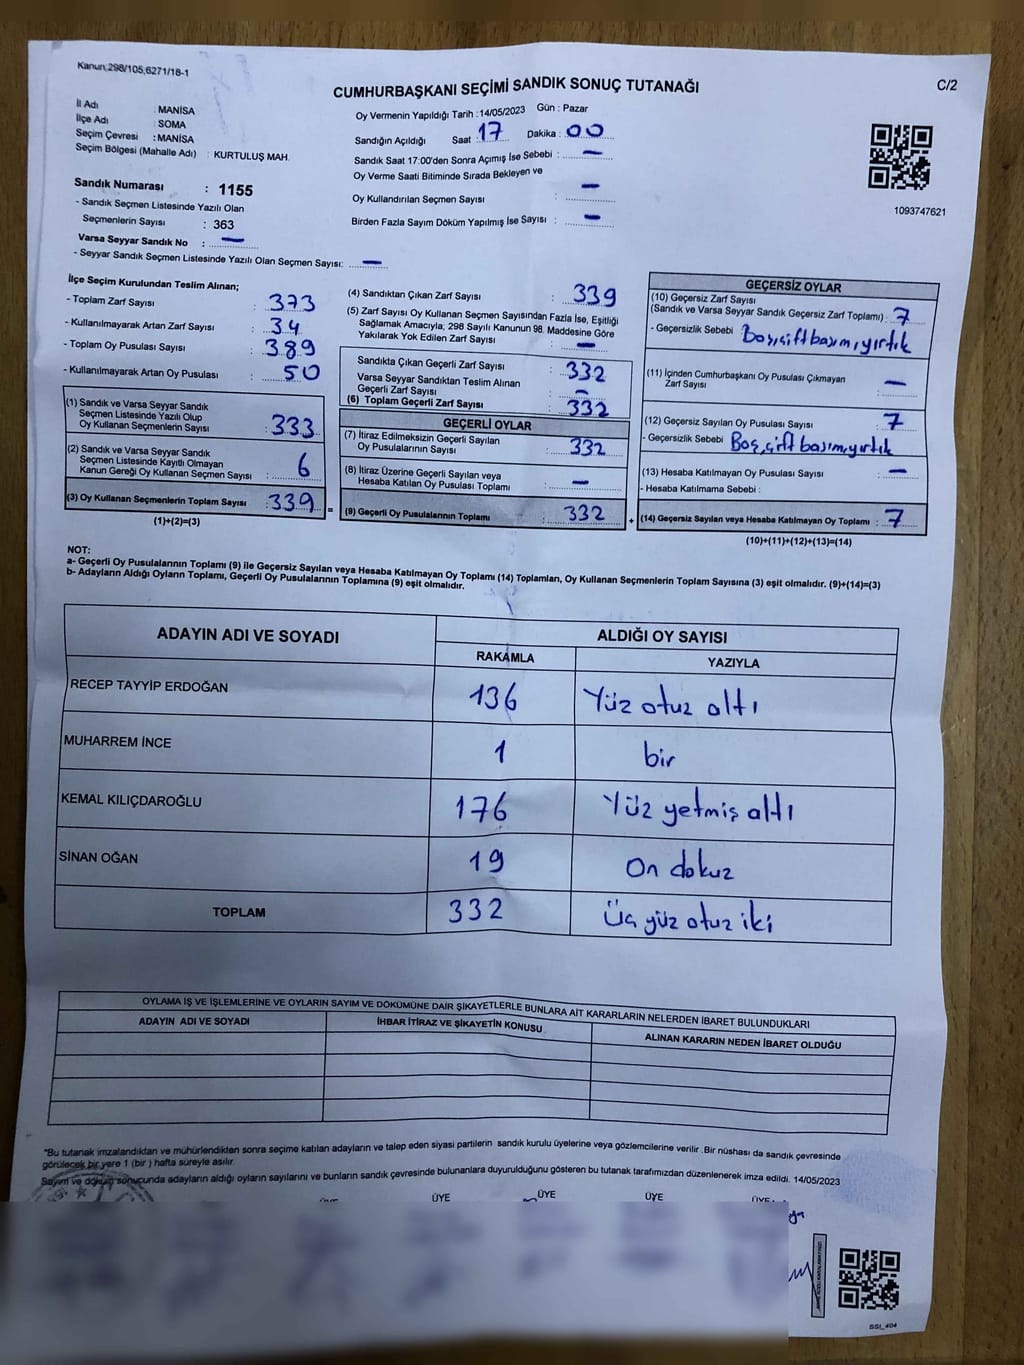 Kanun;298/105;6271/18-1
C/2
CUMHURBAŞKANI SEÇİMİ SANDIK SONUÇ TUTANAĞI
İl Adı : MANİSA
İlçe Adı : SOMA
Seçim Çevresi : MANİSA
Seçim Bölgesi (Mahalle Adı) : KURTULUŞ MAH.
Oy Vermenin Yapıldığı Tarih : 14/05/2023 Gün : Pazar
Sandığın Açıldığı Saat : 17 Dakika : 00
Sandık Saat 17:00'den Sonra Açımış İse Sebebi : —
Oy Verme Saati Bitiminde Sırada Bekleyen ve
Oy Kullandırılan Seçmen Sayısı : —
Birden Fazla Sayım Döküm Yapılmış İse Sayısı : —
1093747621
Sandık Numarası : 1155
- Sandık Seçmen Listesinde Yazılı Olan
Seçmenlerin Sayısı : 363
Varsa Seyyar Sandık No : —
- Seyyar Sandık Seçmen Listesinde Yazılı Olan Seçmen Sayısı: —
İlçe Seçim Kurulundan Teslim Alınan;
- Toplam Zarf Sayısı : 373
- Kullanılmayarak Artan Zarf Sayısı : 34
- Toplam Oy Pusulası Sayısı : 389
- Kullanılmayarak Artan Oy Pusulası : 50
(1) Sandık ve Varsa Seyyar Sandık
Seçmen Listesinde Yazılı Olup
Oy Kullanan Seçmenlerin Sayısı : 333
(2) Sandık ve Varsa Seyyar Sandık
Seçmen Listesinde Kayıtlı Olmayan
Kanun Gereği Oy Kullanan Seçmen Sayısı : 6
(3) Oy Kullanan Seçmenlerin Toplam Sayısı : 339
(1)+(2)=(3)
=
(4) Sandıktan Çıkan Zarf Sayısı : 339
(5) Zarf Sayısı Oy Kullanan Seçmen Sayısından Fazla İse, Eşitliği
Sağlamak Amacıyla; 298 Sayılı Kanunun 98. Maddesine Göre
Yakılarak Yok Edilen Zarf Sayısı : —
Sandıkta Çıkan Geçerli Zarf Sayısı : 332
Varsa Seyyar Sandıktan Teslim Alınan
Geçerli Zarf Sayısı : —
(6) Toplam Geçerli Zarf Sayısı : 332
GEÇERLİ OYLAR
(7) İtiraz Edilmeksizin Geçerli Sayılan
Oy Pusulalarının Sayısı : 332
(8) İtiraz Üzerine Geçerli Sayılan veya
Hesaba Katılan Oy Pusulası Toplamı : —
(9) Geçerli Oy Pusulalarının Toplamı : 332
+
GEÇERSİZ OYLAR
(10) Geçersiz Zarf Sayısı
(Sandık ve Varsa Seyyar Sandık Geçersiz Zarf Toplamı) : 7
- Geçersizlik Sebebi : Boş,çift basım,yırtık
(11) İçinden Cumhurbaşkanı Oy Pusulası Çıkmayan
Zarf Sayısı : —
(12) Geçersiz Sayılan Oy Pusulası Sayısı : 7
- Geçersizlik Sebebi : Boş,çift basım,yırtık
(13) Hesaba Katılmayan Oy Pusulası Sayısı : —
- Hesaba Katılmama Sebebi :
(14) Geçersiz Sayılan veya Hesaba Katılmayan Oy Toplamı : 7
(10)+(11)+(12)+(13)=(14)
NOT:
a- Geçerli Oy Pusulalarının Toplamı (9) ile Geçersiz Sayılan veya Hesaba Katılmayan Oy Toplamı (14) Toplamları, Oy Kullanan Seçmenlerin Toplam Sayısına (3) eşit olmalıdır. (9)+(14)=(3)
b- Adayların Aldığı Oyların Toplamı, Geçerli Oy Pusulalarının Toplamına (9) eşit olmalıdır.
ADAYIN ADI VE SOYADI ALDIĞI OY SAYISI
RAKAMLA YAZIYLA
RECEP TAYYİP ERDOĞAN 136 Yüz otuz altı
MUHARREM İNCE 1 bir
KEMAL KILIÇDAROĞLU 176 Yüz yetmiş altı
SİNAN OĞAN 19 On dokuz
TOPLAM 332 Üç yüz otuz iki
OYLAMA İŞ VE İŞLEMLERİNE VE OYLARIN SAYIM VE DÖKÜMÜNE DAİR ŞİKAYETLERLE BUNLARA AİT KARARLARIN NELERDEN İBARET BULUNDUKLARI
ADAYIN ADI VE SOYADI İHBAR İTİRAZ VE ŞİKAYETİN KONUSU ALINAN KARARIN NEDEN İBARET OLDUĞU
*Bu tutanak imzalandıktan ve mühürlendikten sonra seçime katılan adayların ve talep eden siyasi partilerin sandık kurulu üyelerine veya gözlemcilerine verilir .Bir nüshası da sandık çevresinde
görülecek bir yere 1 (bir ) hafta süreyle asılır.
Sayım ve döküm sonucunda adayların aldığı oyların sayılarını ve bunların sandık çevresinde bulunanlara duyurulduğunu gösteren bu tutanak tarafımızdan düzenlenerek imza edildi. 14/05/2023
ÜYE ÜYE ÜYE ÜYE
SSI_404